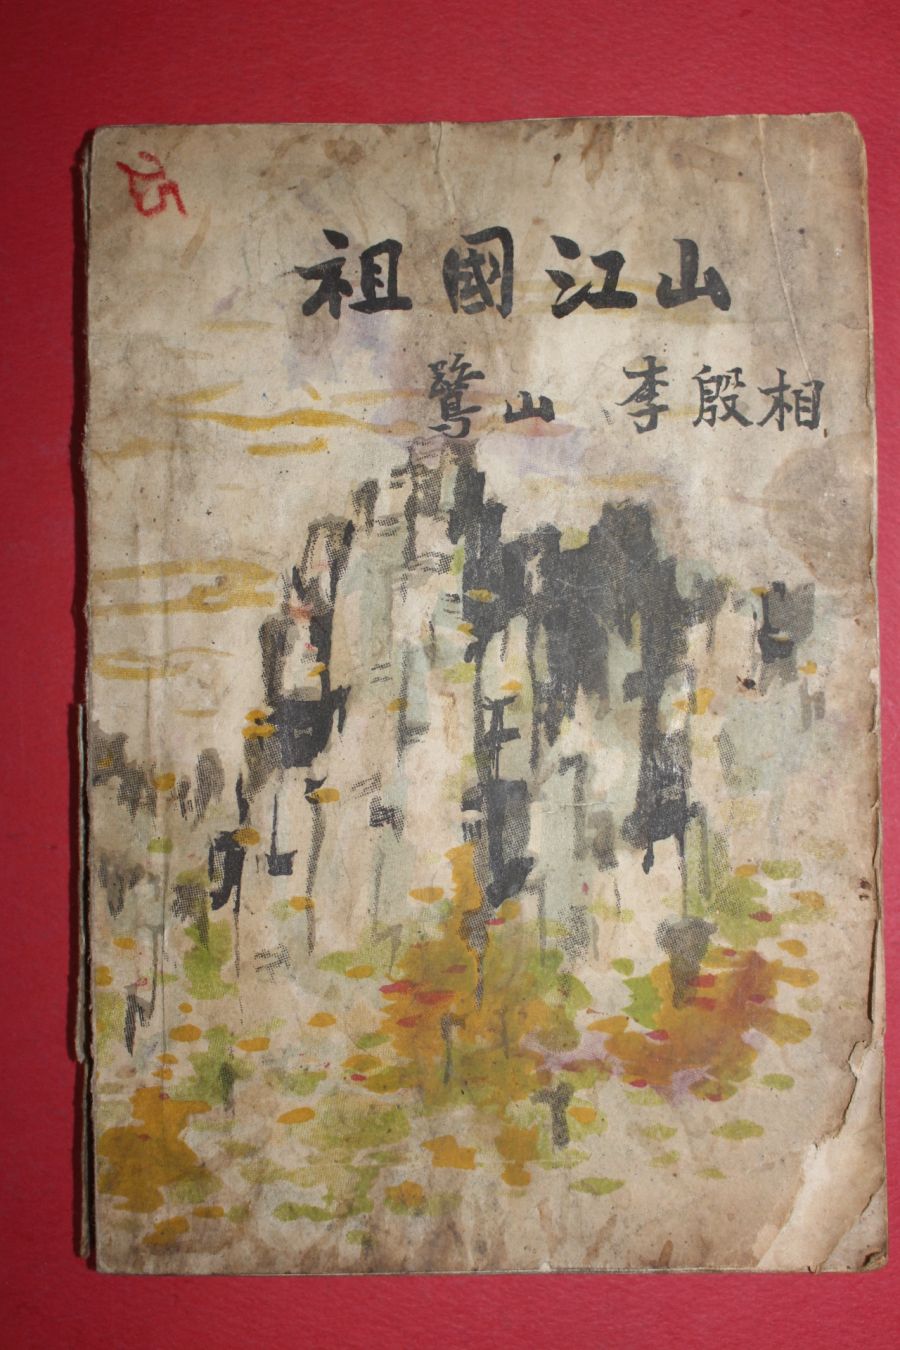 25
祖國江山
鷺山 李殷相